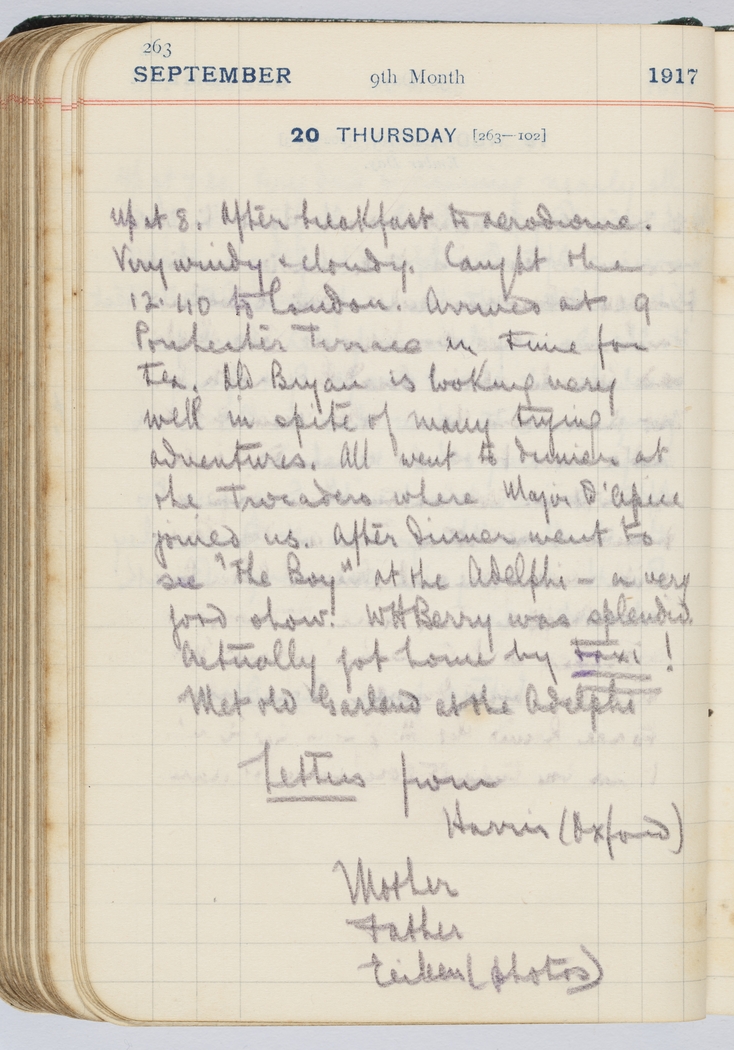 263
SEPTEMBER 9th Month 1917
20 THURSDAY [263—102]
Up at 8. After breakfast to aerodrome.
Very windy & cloudy. Caught the
12.40 to London. Arrived at 9
Porchester Terrace in time for
tea. Old Bryan is looking very
well in spite of many trying
adventures. All went to dinner at
the Trocadero where Major D'Apice
joined us. After dinner went to
see "The Boy" at the Adelphi – a very
good show. WH Berry was splendid.
Actually got home by taxi!
Met old Garland at the Adelphi
Letters from
Harris (Oxford)
Mother
Father
Eileen (photos)